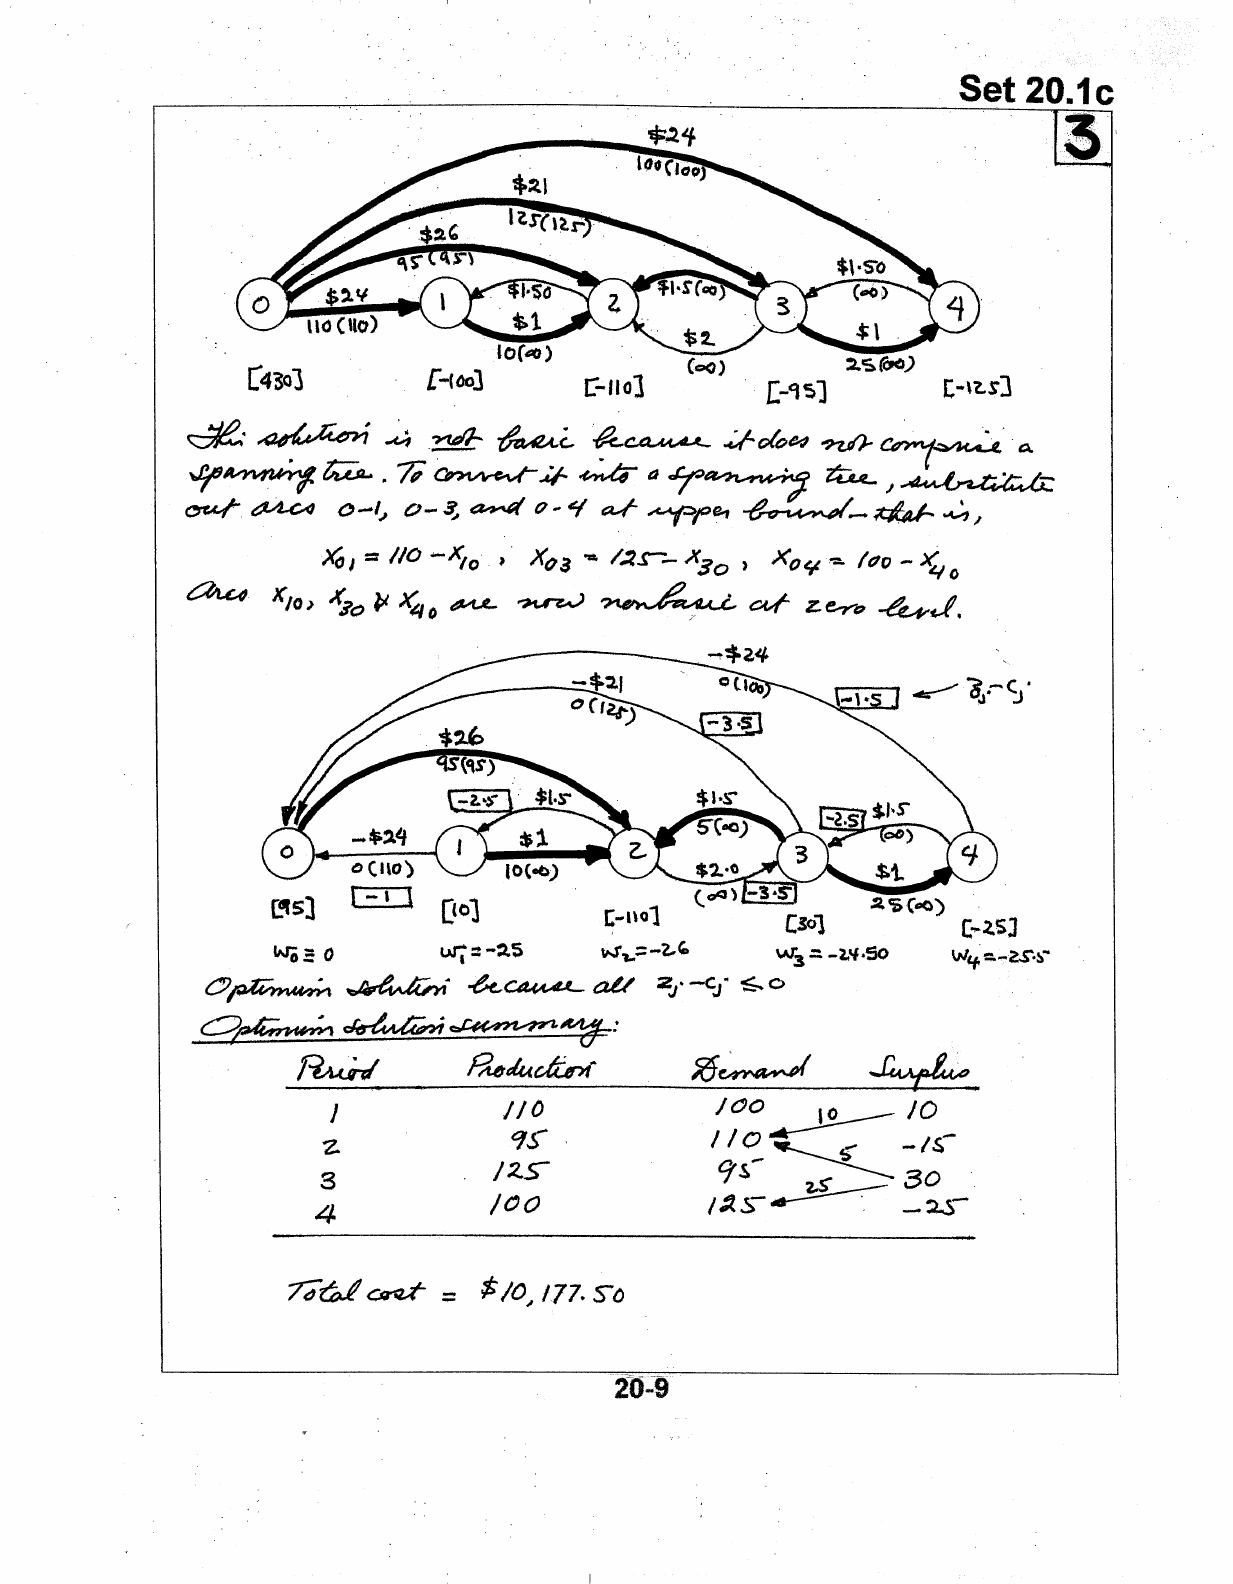 Set 20.1c
3
$24
100(100)
$21
125(125)
$26
95(95)
$1.50
(∞)
$24
110(110)
$1.50
$1
10(∞)
$1.5(∞)
$2
(∞)
$1
25(∞)
0 1 2 3 4
[430] [-100] [-110] [-95] [-125]
This solution is not basic because it does not comprise a
spanning tree. To convert it into a spanning tree, substitute
out arcs 0-1, 0-3, and 0-4 at upper bound—that is,
X01 = 110 - X10 , X03 = 125 - X30 , X04 = 100 - X40
Arcs X10, X30 & X40 are now nonbasic at zero level.
-$24
0(100)
-1.5 ← Zj-Cj
-$21
0(125)
-3.5
$26
95(95)
-2.5 $1.5
$1.5
5(∞)
-2.5 $1.5
(∞)
-$24
0(110)
-1
$1
10(∞)
$2.0
(∞) -3.5
$1
25(∞)
0 1 2 3 4
[95] [10] [-110] [30] [-25]
W0 ≡ 0 W1 = -25 W2 = -26 W3 = -24.50 W4 = -25.5
Optimum solution because all Zj - Cj ≤ 0
Optimum solution summary:
Period Production Demand Surplus
1 110 100 10 10
2 95 110 5 -15
3 125 95 25 30
4 100 125 -25
Total cost = $10,177.50
20-9